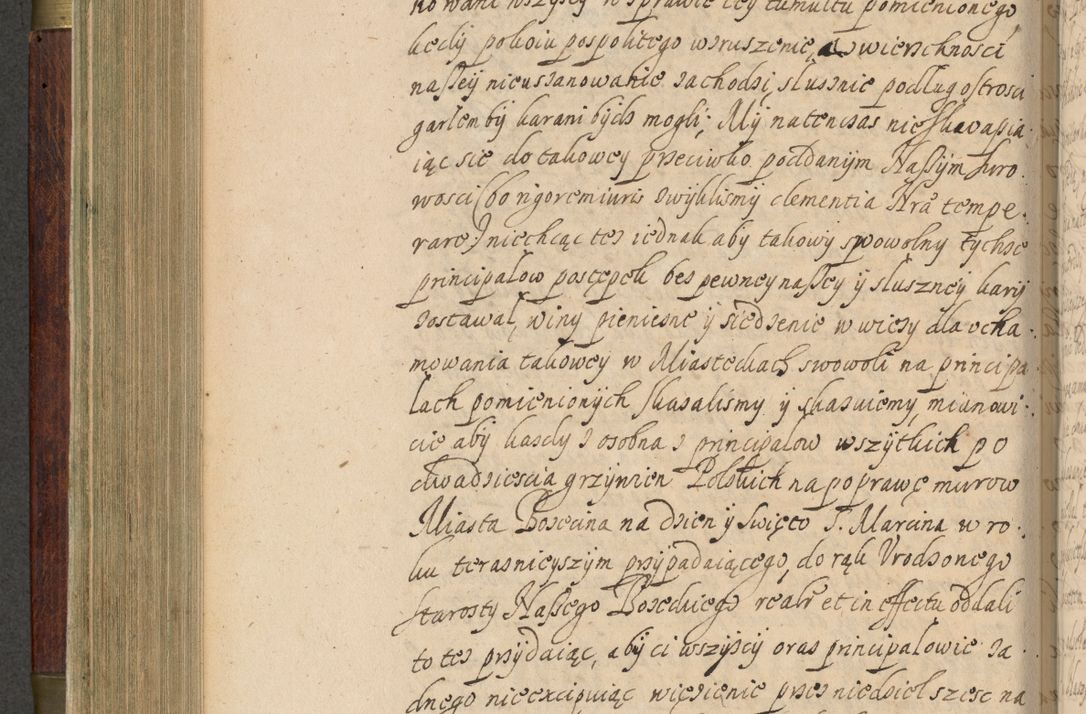 kowani wszyscy w sprawie tey tumultu pomienionego
kiedy pokoiu pospolitego wzruszenie, a zwierzchnosci
naszey nieuszanowanie zachodzi, slusznie podług ostrosci
garłem by karani bydz mogli; My natenczas nieskwapia
iąc sie do takowey przeciwko poddanym Naszym suro
wosci (bo rigorem iuris zwyklismy clementia Nra tempe
rare) niechcąc tez iednak aby takowy spowolny tychze
principalow postępek bez pewney naszey y słuszney kary
zostawał, winy pieniezne y siedzenie w wiezy dla vcha
mowania takowey w Miasteckach swowoli na principa
lach pomienionych skazalismy y skazuiemy, mianowi
cie aby kazdy z osobna z principalow wszytkich po
dwadziescia grzywien Polskich na poprawę murow
Miasta Bozecina na dzien y swięto S. Marcina w ro
ku teraznieyszym przypadaiącego, do rąk Vrodzonego
Starosty Naszego Bozeckiego realr et in effectu oddali
to tez przydaiąc, aby ci wszyscy oraz principalowie za
dnego nieexcipuiąc więzienie przez niedziel szesc na